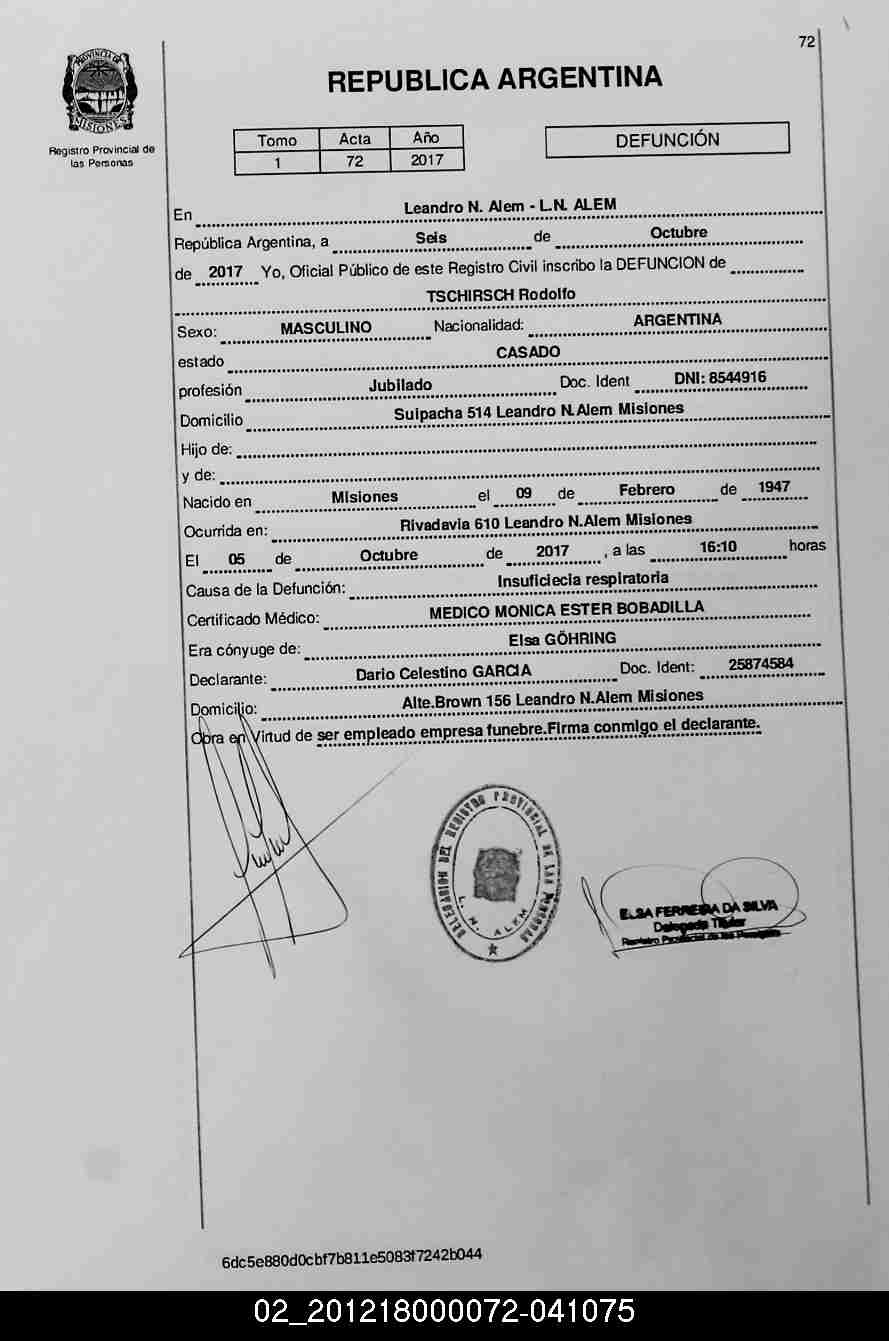 72
PROVINCIA DE
MISIONES
Registro Provincial de
las Personas
REPUBLICA ARGENTINA
Tomo Acta Año
1 72 2017
DEFUNCIÓN
En Leandro N. Alem - L.N. ALEM
República Argentina, a Seis de Octubre
de 2017 Yo, Oficial Público de este Registro Civil inscribo la DEFUNCION de
TSCHIRSCH Rodolfo
Sexo: MASCULINO Nacionalidad: ARGENTINA
estado CASADO
profesión Jubilado Doc. Ident DNI: 8544916
Domicilio Suipacha 514 Leandro N.Alem Misiones
Hijo de:
y de:
Nacido en Misiones el 09 de Febrero de 1947
Ocurrida en: Rivadavia 610 Leandro N.Alem Misiones
El 05 de Octubre de 2017 , a las 16:10 horas
Causa de la Defunción: Insuficiecia respiratoria
Certificado Médico: MEDICO MONICA ESTER BOBADILLA
Era cónyuge de: Elsa GÖHRING
Declarante: Dario Celestino GARCIA Doc. Ident: 25874584
Domicilio: Alte.Brown 156 Leandro N.Alem Misiones
Obra en Virtud de ser empleado empresa funebre.Firma conmigo el declarante.
DELEGACION DEL REGISTRO PROVINCIAL DE LAS PERSONAS
L. N. ALEM
ELSA FERREIRA DA SILVA
Delegada Titular
Registro Provincial de las Personas
6dc5e880d0cbf7b811e5083f7242b044
02_201218000072-041075